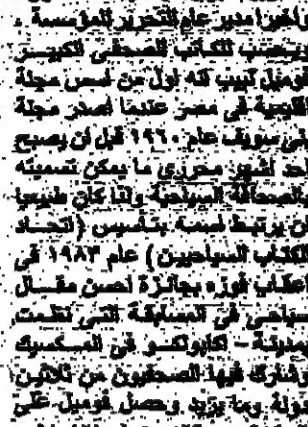 وأخيرا مدير عام التحرير للمؤسسة .
ويحتسب للكاتب الصحفى الكبير
لبيب أنه أول من أسس مجلة
إقليمية فى مصر عندما أصدر مجلة
بنى سويف عام ١٩٦٠ قبل أن يصبح
أحد أشهر محررى ما يمكن تسميته
الصحافة السياحية ولذا كان طبيعيا
أن يرتبط اسمه بتأسيس (اتحاد
الكتاب السياحيين) عام ١٩٨٣ فى
أعقاب فوزه بجائزة أحسن مقال
سياحى فى المسابقة التى نظمت
بمدينة - أكابولكو فى المكسيك
وشارك فيها الصحفيون من ثلاثين
دولة وما يزيد وحصل على